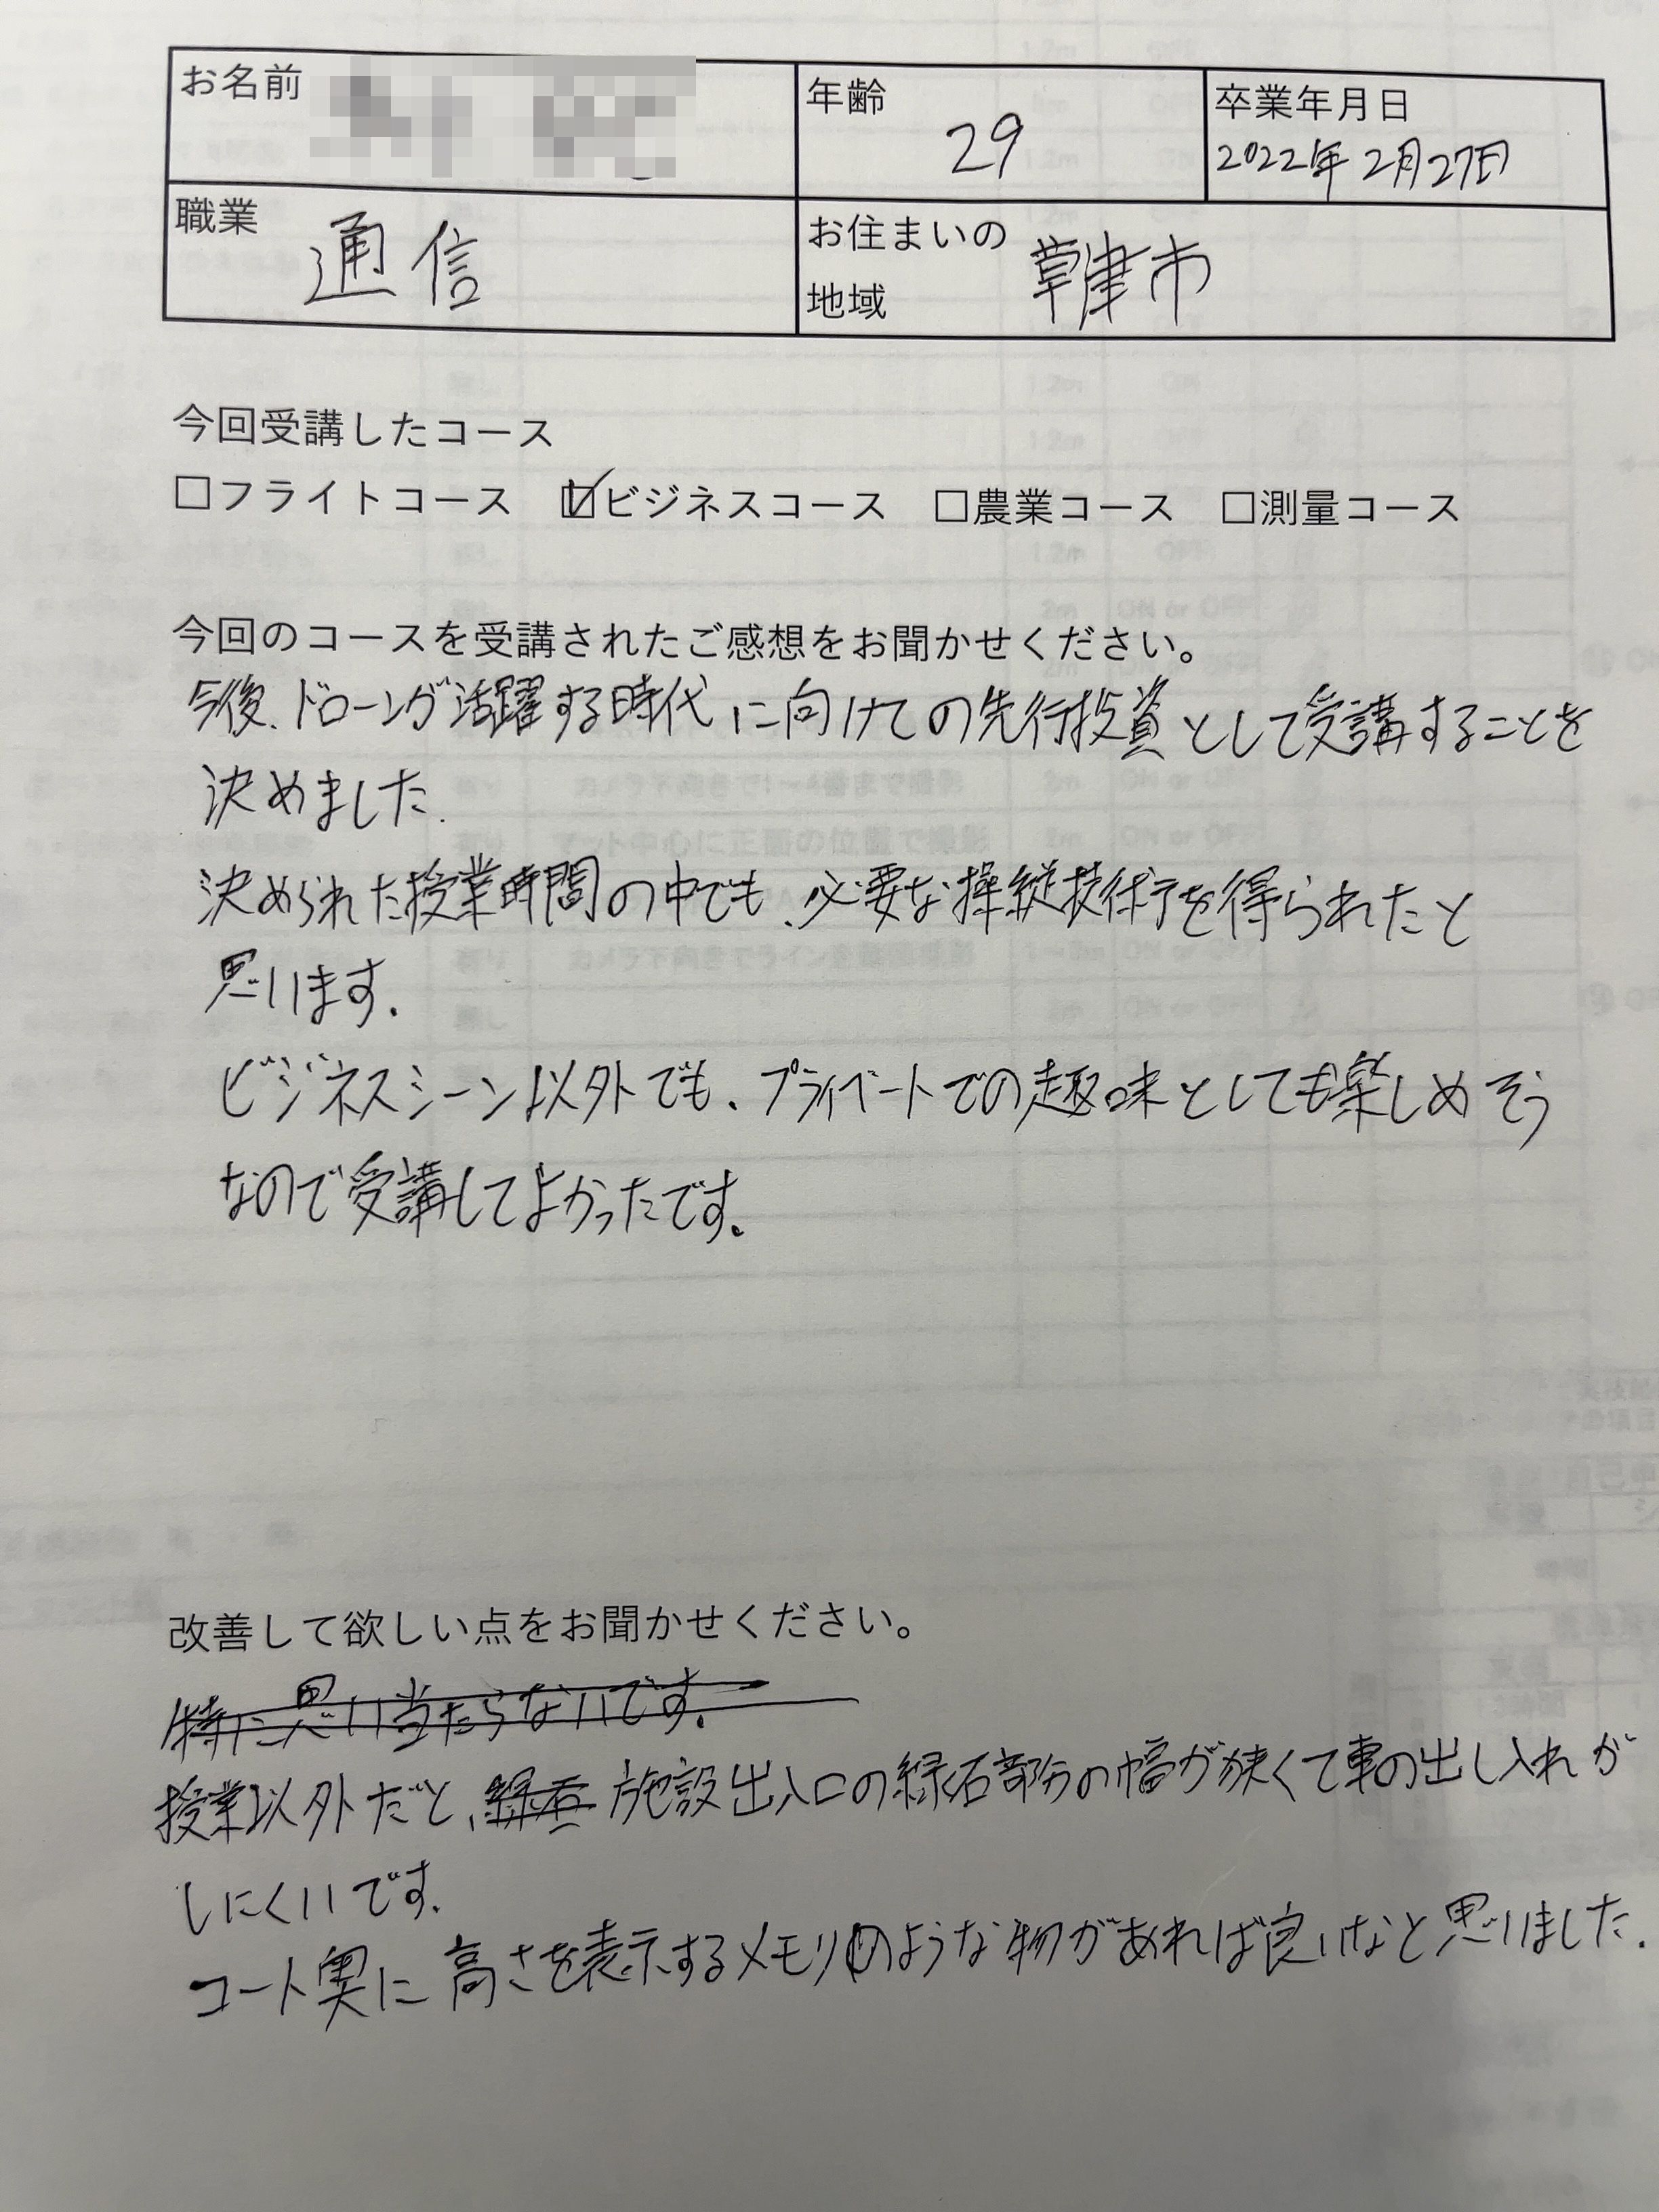 お名前
年齢
29
卒業年月日
2022年2月27日
職業
通信
お住まいの
地域
草津市
今回受講したコース
□フライトコース ☑ビジネスコース □農業コース □測量コース
今回のコースを受講されたご感想をお聞かせください。
今後、ドローンが活躍する時代に向けての先行投資として受講することを
決めました.
決められた授業時間の中でも、必要な操縦技術を得られたと
思います.
ビジネスシーン以外でも、プライベートでの趣味としても楽しめそう
なので受講してよかったです。
改善して欲しい点をお聞かせください。
特に思い当たらないです.
授業以外だと、施設出入口の縁石部分の幅が狭くて車の出し入れが
しにくいです.
コート奥に高さを表示するメモリのような物があれば良いなと思いました.
カメラ下向きで1〜4番まで撮影
マット中心に正面の位置で撮影
1.2m
OFF
2m
ON or OFF